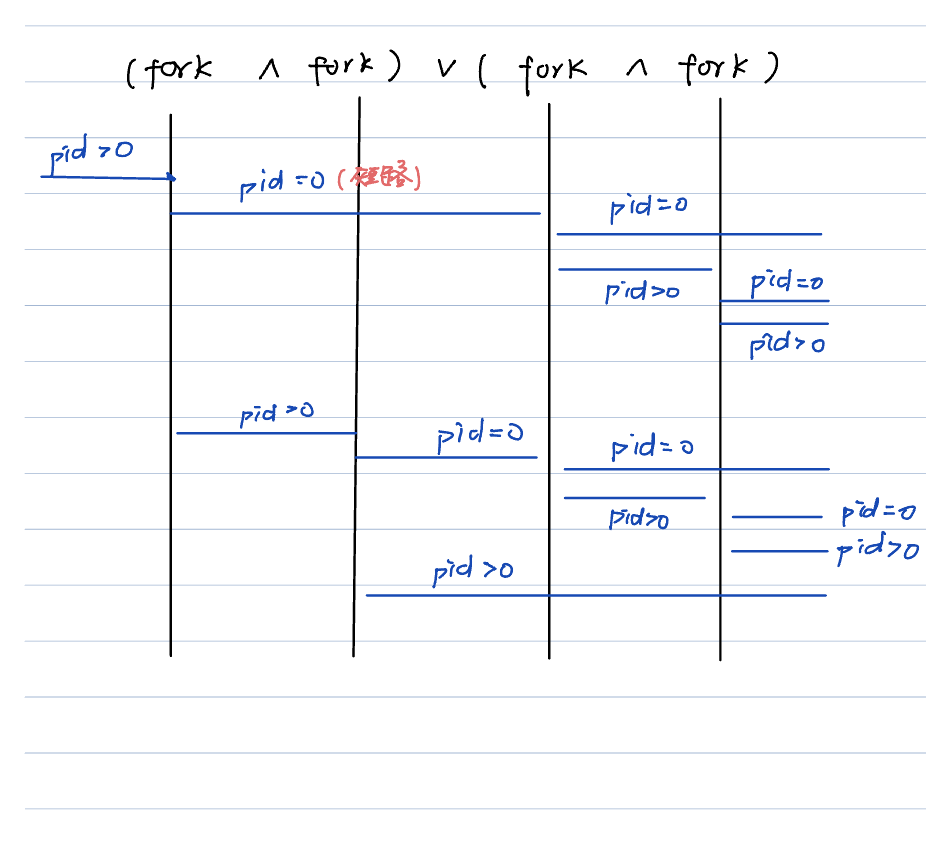 (fork ∧ fork) ∨ (fork ∧ fork)
pid>0
pid=0 (短路)
pid=0
pid>0
pid=0
pid>0
pid>0
pid=0
pid=0
pid>0
pid=0
pid>0
pid>0